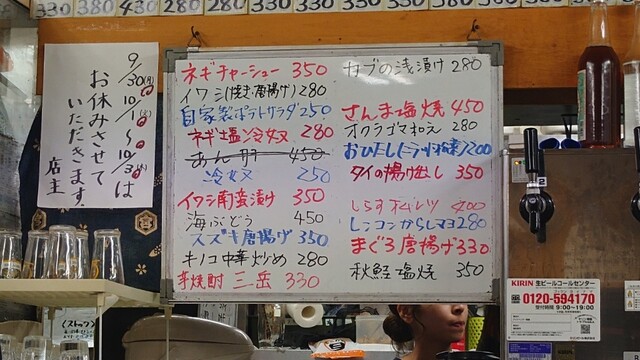 330 380 430 280 280 330 330 330 400 380 380
9/30(月)
10/1(火)
〜
10/3(木)は
お休みさせて
いただきます。
店主
ネギチャーシュー 350
イワシ(焼き・唐揚げ) 280
自家製ポテトサラダ 250
ネギ塩冷奴 280
冷奴 250
イワシ南蛮漬け 350
海ぶどう 450
スズキ唐揚げ 350
キノコ中華炒め 280
芋焼酎 三岳 330
カブの浅漬け 280
さんま塩焼 450
オクラゴマ和え 280
タイの揚げ出し 350
しらすオムレツ 400
レンコンからしマヨ 280
まぐろ唐揚げ 330
秋鮭塩焼 350
KIRIN 生ビールコールセンター
0120-594170
受付時間 9:00〜19:00